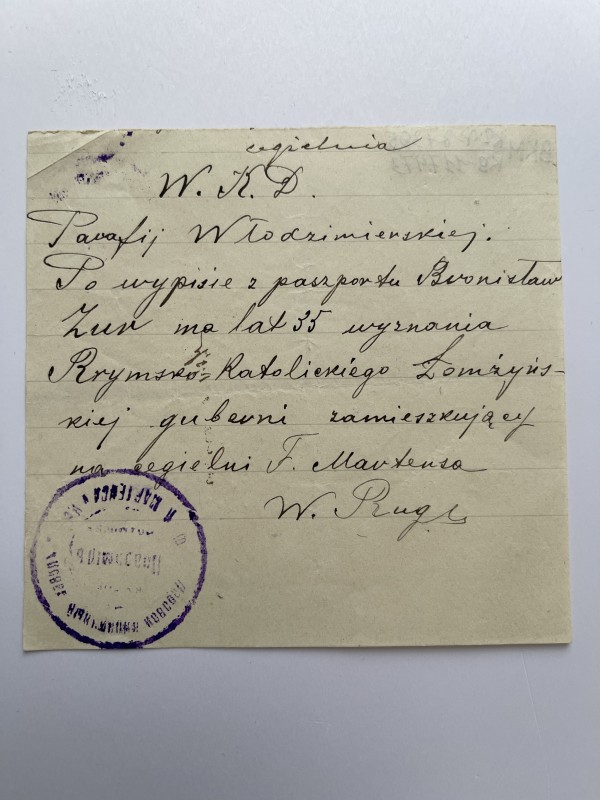 cegielnia
W. K. D.
Parafij Włodzimierskiej.
Po wypisie z paszportu Bronisław
Żur ma lat 35 wyznania
Rzymsko Katolickiego Łomżyńs-
kiej guberni zamieszkujący
na cegielni F. Martensa
W.
Паровой кирпичный заводъ
Ф. МАРТЕНСА